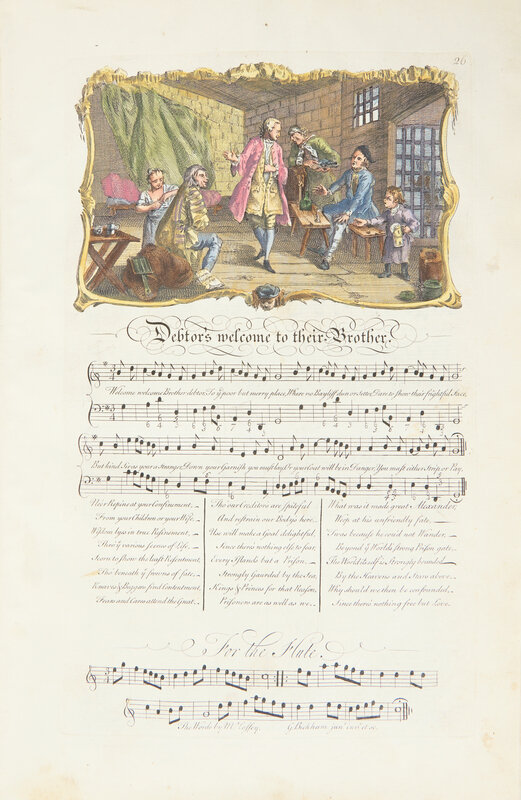 26
Debtor's welcome to their Brother.
Welcome welcome Brother debtor, To ys poor but merry place, Where no Bayliff dun or setter, Dare to show their frightful Face,
But kind Sir as your a Stranger, Down your garnish you must lay, Or your Coat will be in Danger, You must either Strip or Pay.
Ne'er Repine at your Confinement,
From your Children or your Wife,
Wisdom lyes in true Refinement,
Thro' ye various scenes of Life,
Scorn to show the least Resentment,
Tho' beneath ye frowns of fate,
Knaves & Beggars find Contentment,
Fears and Cares attend the Great.
Tho our Creditors are spiteful,
And restrain our Bodys here,
Use will make a Goal delightful,
Since theres nothing else to fear,
Every Island's but a Prison,
Strongly gaurded by the Sea,
Kings & Princes for that Reason,
Prisoners are as well as we.
What was it made great Alexander,
Weep at his unfriendly fate,
Twas because he cou'd not Wander,
Beyond ye Worlds strong Prison gate,
The World itself is Strongly bounded,
By the Heavens and Stars above,
Why should we then be confounded,
Since there's nothing free but Love.
For the Flute.
The Words by Mr. Coffey.
G. Bickham jun. inv. et sc.